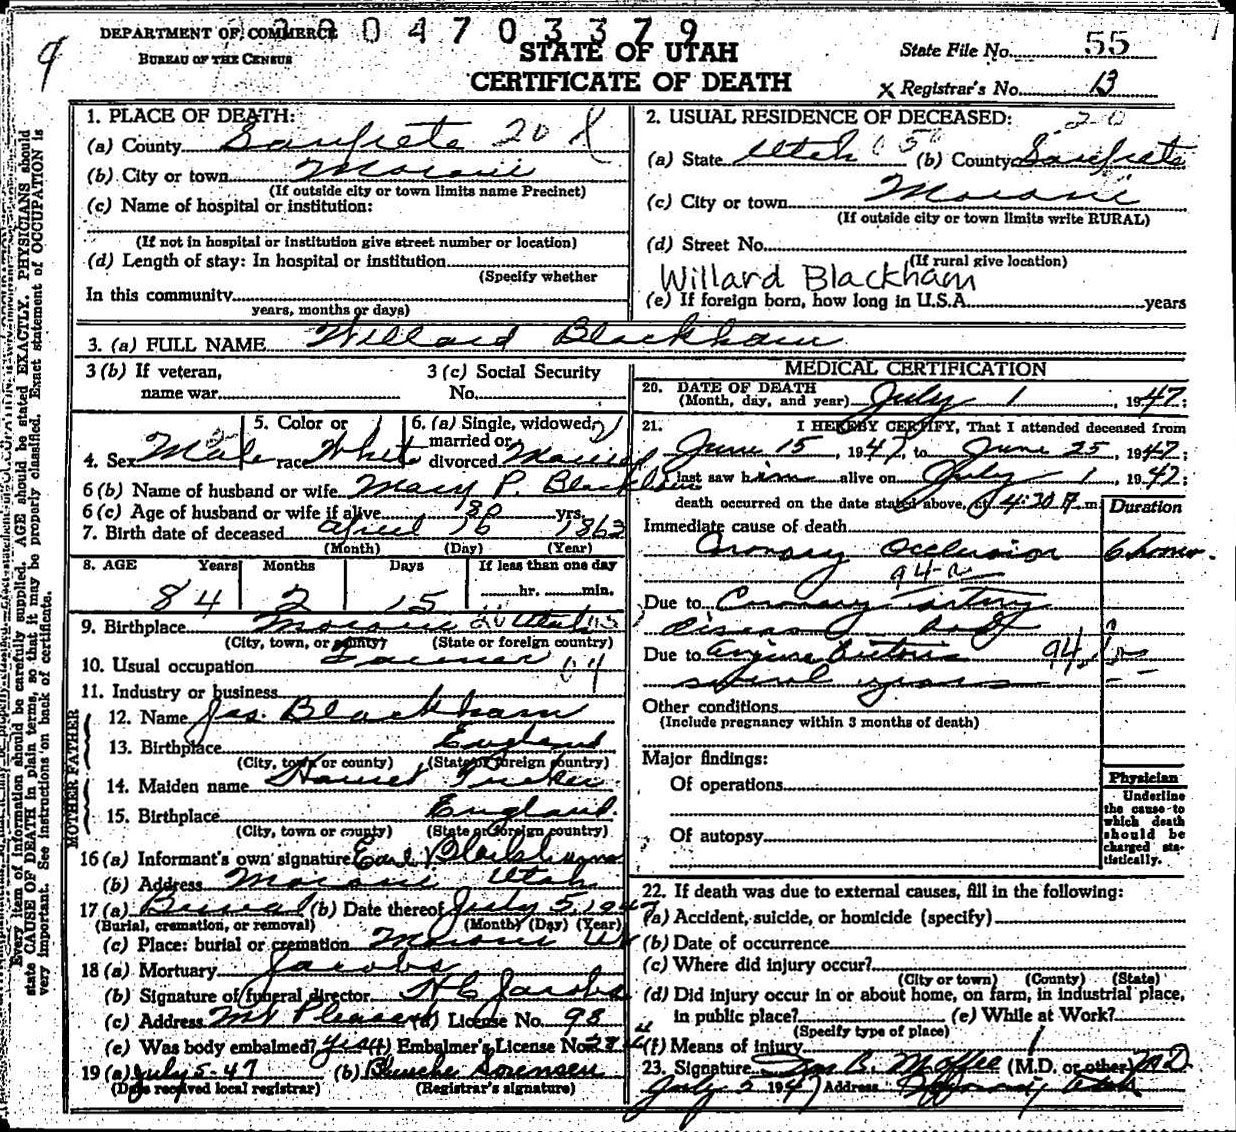 DEPARTMENT OF COMMERCE
BUREAU OF THE CENSUS
0 4 7 0 3 3 7 9
STATE OF UTAH
CERTIFICATE OF DEATH
State File No. 55
X Registrar's No. 13
Every item of information should be carefully supplied. AGE should be stated EXACTLY. PHYSICIANS should
state CAUSE OF DEATH in plain terms, so that it may be properly classified. Exact statement of OCCUPATION is
very important. See instructions on back of certificate.
1. PLACE OF DEATH:
(a) County Sanpete 20
(b) City or town Moroni
(If outside city or town limits name Precinct)
(c) Name of hospital or institution:
(If not in hospital or institution give street number or location)
(d) Length of stay: In hospital or institution
(Specify whether
In this community
years, months or days)
2. USUAL RESIDENCE OF DECEASED: 20
(a) State Utah (b) County Sanpete
(c) City or town Moroni
(If outside city or town limits write RURAL)
(d) Street No.
(If rural give location)
Willard Blackham
(e) If foreign born, how long in U.S.A. years
3. (a) FULL NAME Willard Blackham
3 (b) If veteran,
name war
3 (c) Social Security
No.
4. Sex Male
5. Color or
race White
6. (a) Single, widowed,
married or
divorced Married
6 (b) Name of husband or wife Mary P. Blackham
6 (c) Age of husband or wife if alive 80 yrs.
7. Birth date of deceased April 16 1863
(Month) (Day) (Year)
8. AGE Years Months Days If less than one day
84 2 15 hr. min.
9. Birthplace Moroni Utah
(City, town, or county) (State or foreign country)
10. Usual occupation Farmer
11. Industry or business
FATHER
12. Name Jas. Blackham
13. Birthplace England
(City, town or county) (State or foreign country)
MOTHER
14. Maiden name
15. Birthplace England
(City, town or county) (State or foreign country)
16 (a) Informant's own signature Earl Blackham
(b) Address Moroni Utah
17 (a) Burial (b) Date thereof July 5, 1947
(Burial, cremation, or removal) (Month) (Day) (Year)
(c) Place: burial or cremation Moroni Ut
18 (a) Mortuary Jacobs
(b) Signature of funeral director H C Jacobs
(c) Address Mt Pleasant (d) License No. 98
(e) Was body embalmed? yes (f) Embalmer's License No.
19 (a) July 5-47 (b) Blanche Sorensen
(Date received local registrar) (Registrar's signature)
MEDICAL CERTIFICATION
20. DATE OF DEATH
(Month, day, and year) July 1, 1947;
21. I HEREBY CERTIFY, That I attended deceased from
June 15, 1947, to June 25, 1947
last saw him alive on July 1, 1947;
death occurred on the date stated above, at 4:30 P. m. Duration
Immediate cause of death
Coronary Occlusion 6 hours.
94-a
Due to Coronary Artery
disease
Due to Angina Pectoris 94
several years
Other conditions
(Include pregnancy within 3 months of death)
Major findings:
Of operations
Of autopsy
Physician
Underline
the cause to
which death
should be
charged sta-
tistically.
22. If death was due to external causes, fill in the following:
(a) Accident, suicide, or homicide (specify)
(b) Date of occurrence
(c) Where did injury occur?
(City or town) (County) (State)
(d) Did injury occur in or about home, on farm, in industrial place,
in public place? (e) While at Work?
(Specify type of place)
(f) Means of injury
23. Signature (M.D. or other) MD
July 2 1947 Address Utah